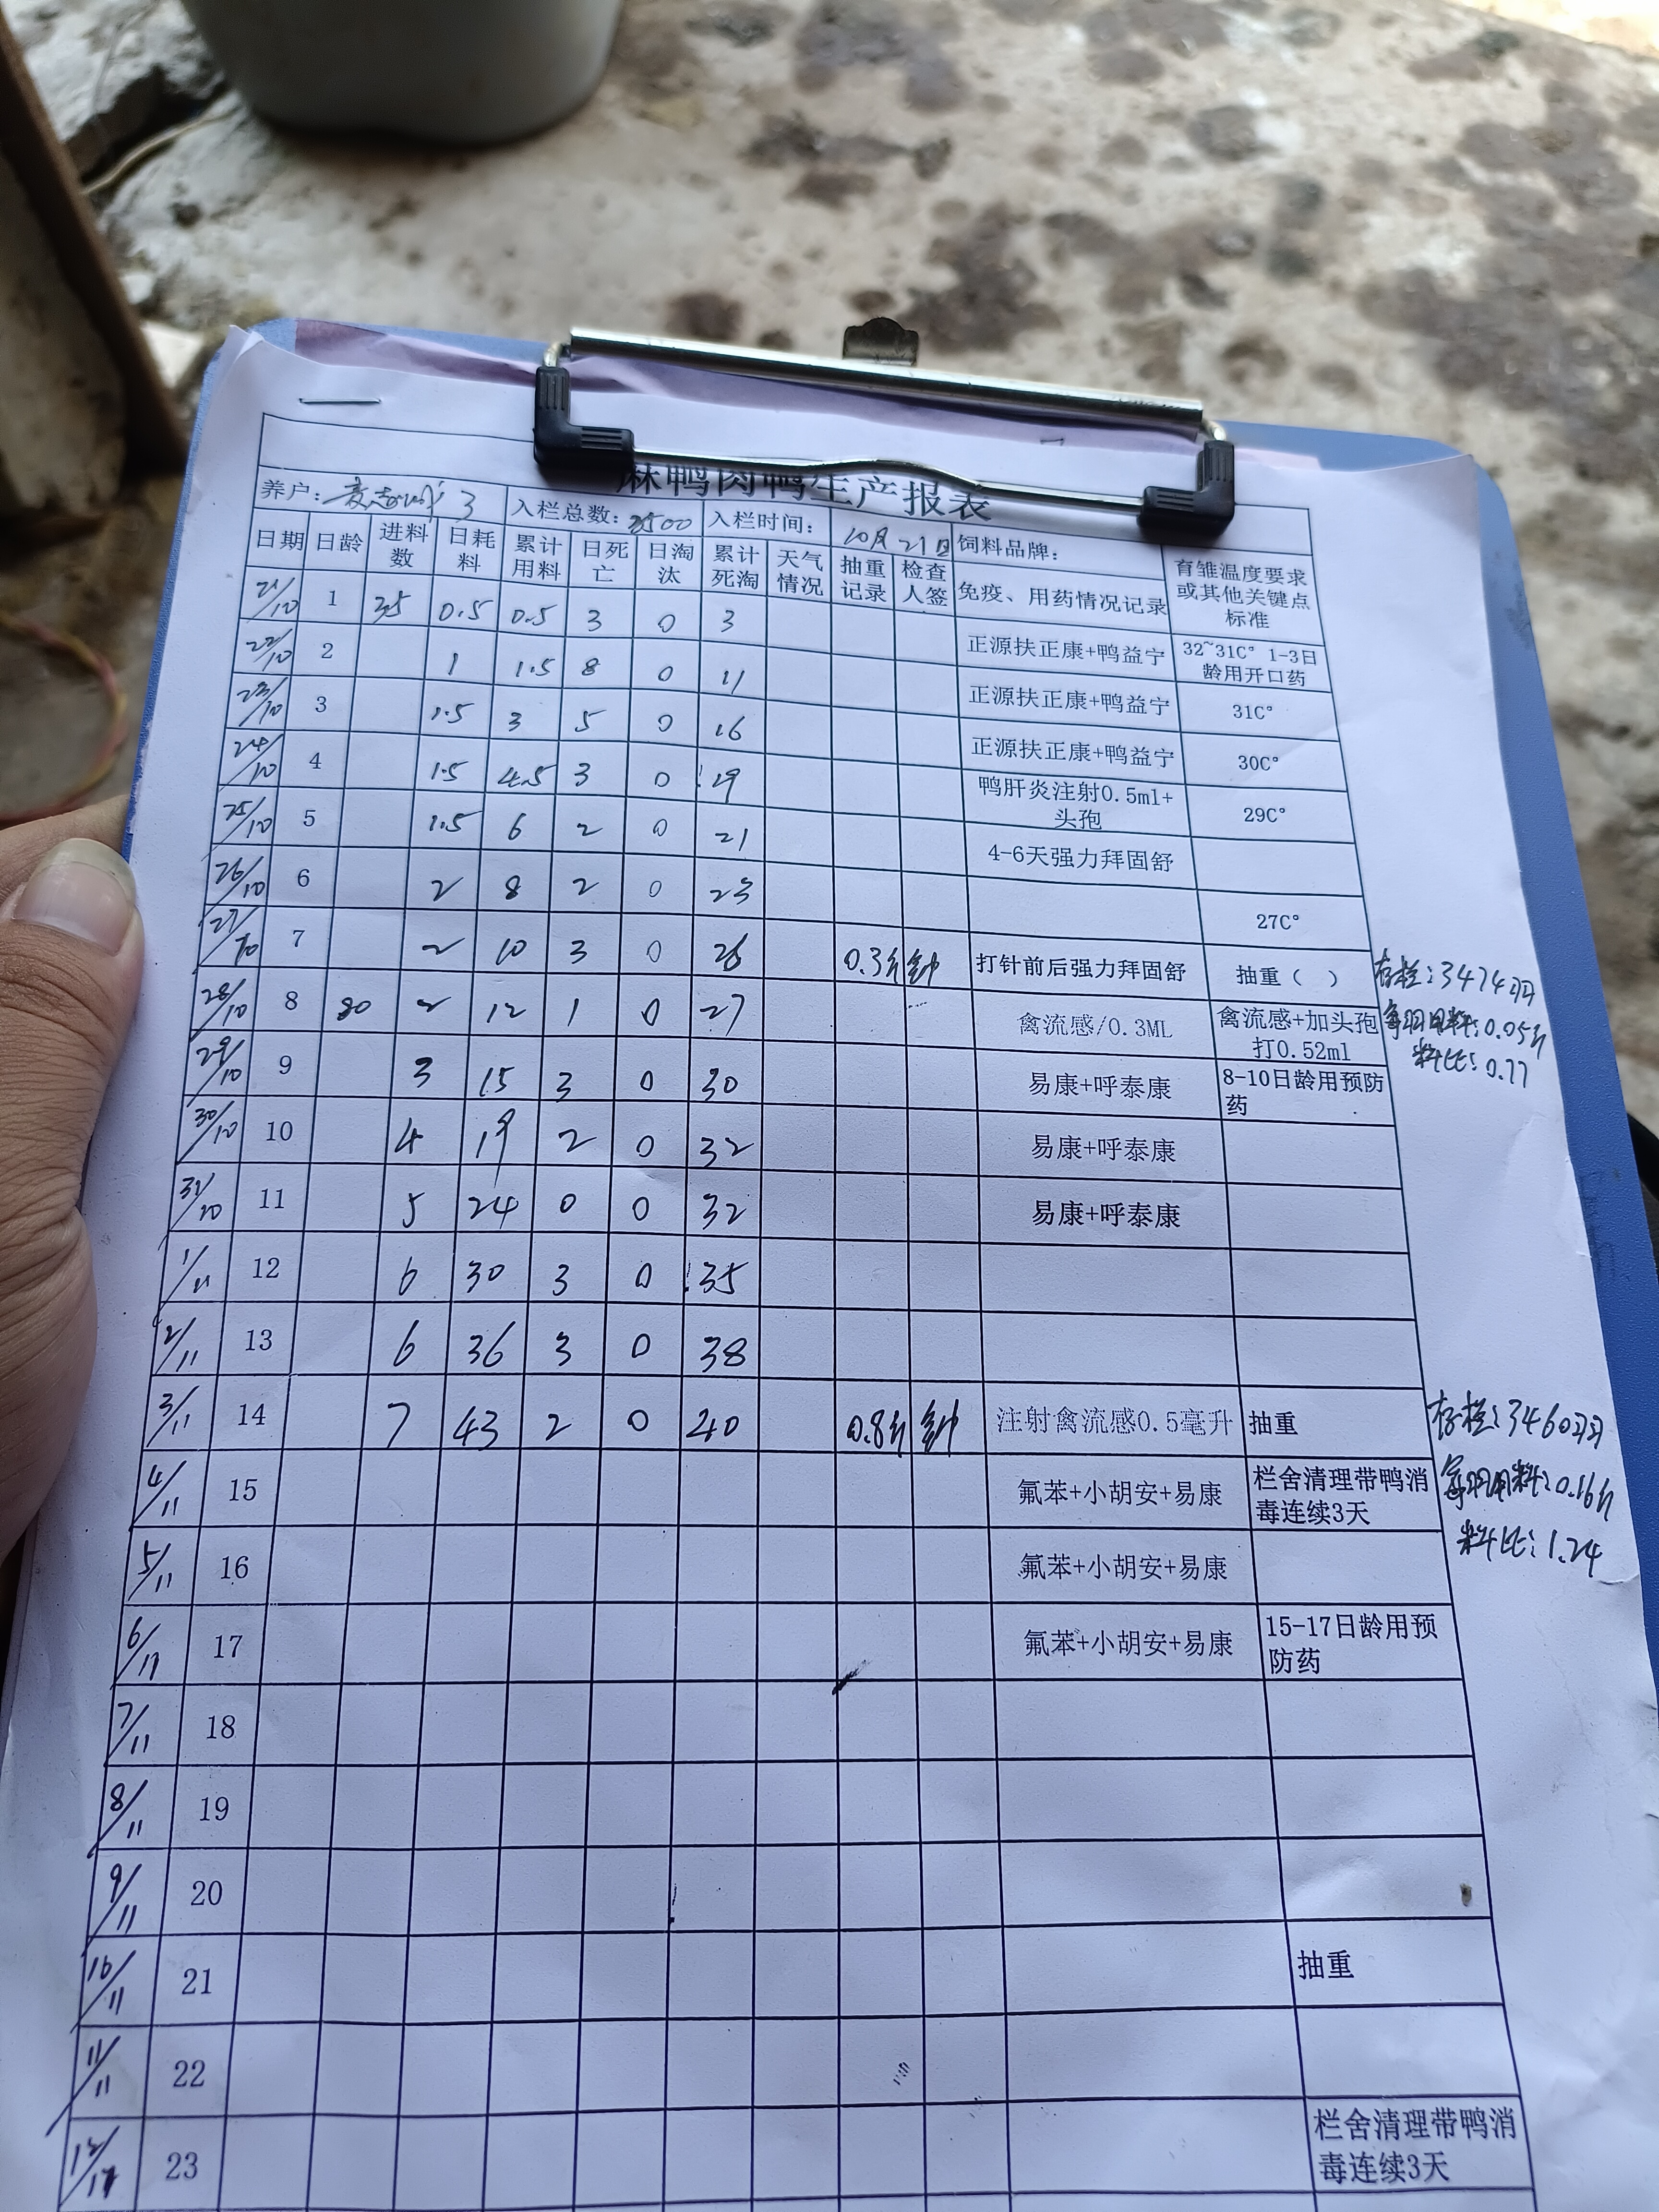 麻鸭肉鸭生产报表
养户: 3 入栏总数: 3500 入栏时间: 10月21日 饲料品牌:
日期 日龄 进料数 日耗料 累计用料 日死亡 日淘汰 累计死淘 天气情况 抽重记录 检查人签 免疫、用药情况记录 育雏温度要求或其他关键点标准
21/10 1 35 0.5 0.5 3 0 3 正源扶正康+鸭益宁 32~31C° 1-3日龄用开口药
22/10 2 1 1.5 8 0 11 正源扶正康+鸭益宁 31C°
23/10 3 1.5 3 5 0 16 正源扶正康+鸭益宁 30C°
24/10 4 1.5 4.5 3 0 19 鸭肝炎注射0.5ml+头孢 29C°
25/10 5 1.5 6 2 0 21 4-6天强力拜固舒
26/10 6 2 8 2 0 23 27C°
27/10 7 2 10 3 0 26 0.3斤 钟 打针前后强力拜固舒 抽重（ ）
存栏:3474羽
每羽用料:0.05斤
料比:0.77
28/10 8 80 2 12 1 0 27 禽流感/0.3ML 禽流感+加头孢打0.52ml
29/10 9 3 15 3 0 30 易康+呼泰康 8-10日龄用预防药
30/10 10 4 19 2 0 32 易康+呼泰康
31/10 11 5 24 0 0 32 易康+呼泰康
1/11 12 6 30 3 0 35
2/11 13 6 36 3 0 38
3/11 14 7 43 2 0 40 0.8斤 钟 注射禽流感0.5毫升 抽重
存栏:3460羽
每羽用料:0.16斤
料比:1.24
4/11 15 氟苯+小胡安+易康 栏舍清理带鸭消毒连续3天
5/11 16 氟苯+小胡安+易康
6/11 17 氟苯+小胡安+易康 15-17日龄用预防药
7/11 18
8/11 19
9/11 20
10/11 21 抽重
11/11 22
12/11 23 栏舍清理带鸭消毒连续3天